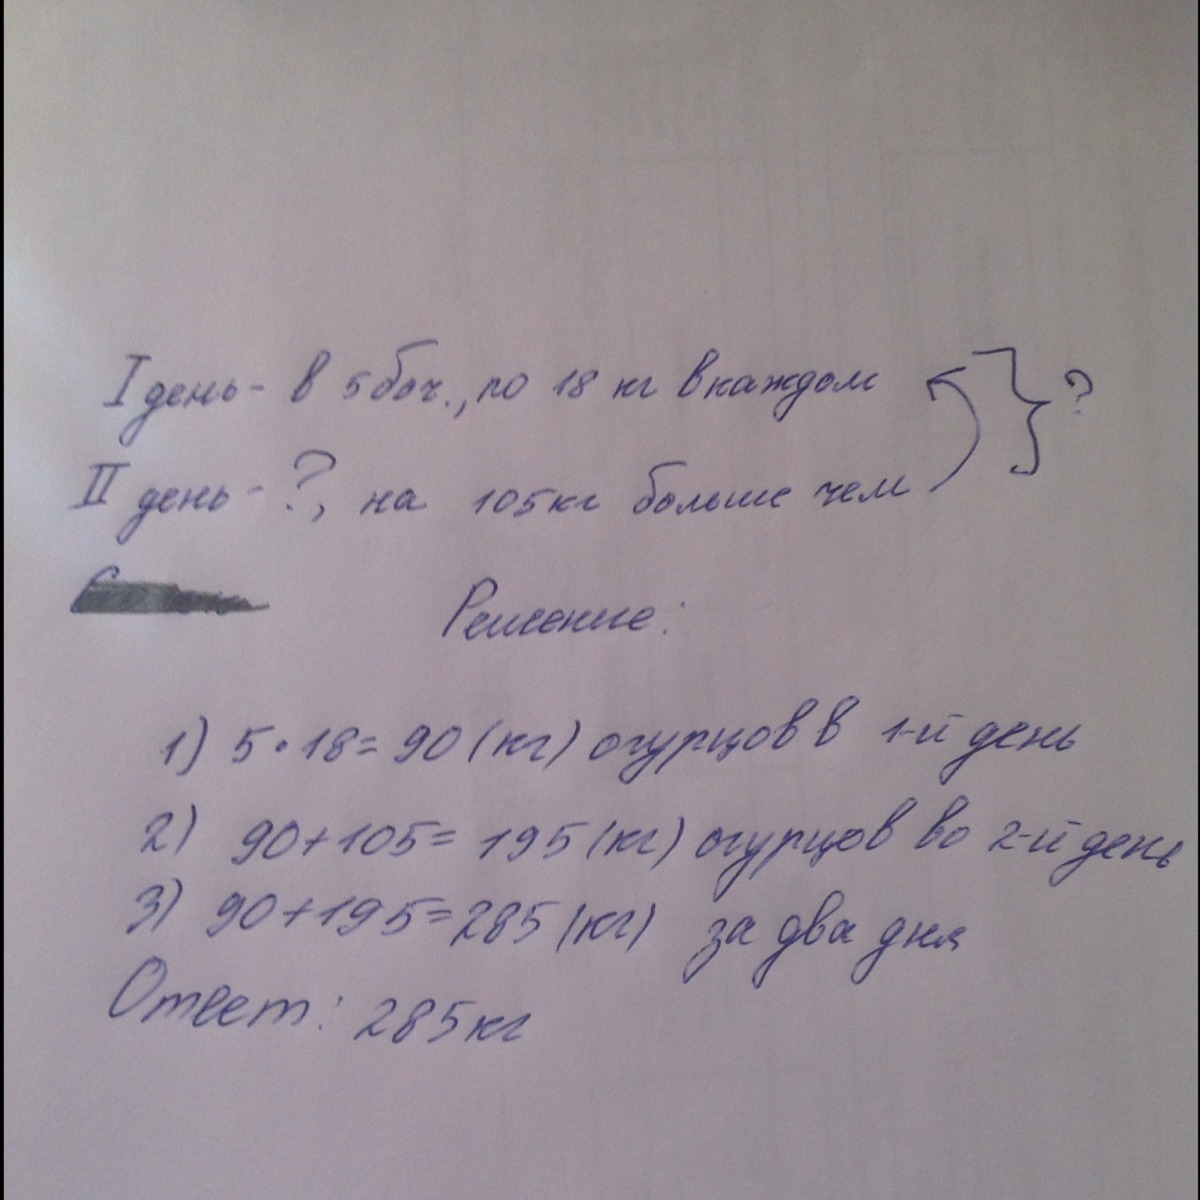 I день - в 5 боч., по 18 кг в каждом } ?
II день - ?, на 105 кг больше чем
Решение:
1) 5 · 18 = 90 (кг) огурцов в 1-й день
2) 90 + 105 = 195 (кг) огурцов во 2-й день
3) 90 + 195 = 285 (кг) за два дня
Ответ: 285 кг